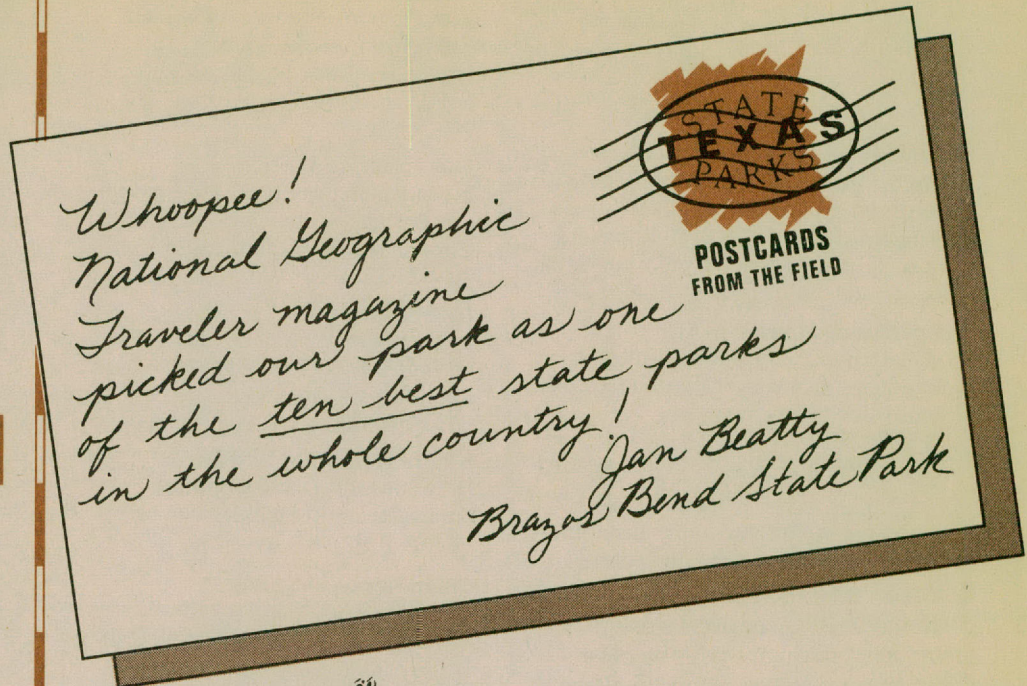 STATE
TEXAS
PARKS
POSTCARDS
FROM THE FIELD
Whoopee!
National Geographic
Traveler magazine
picked our park as one
of the ten best state parks
in the whole country!
Jan Beatty
Brazos Bend State Park